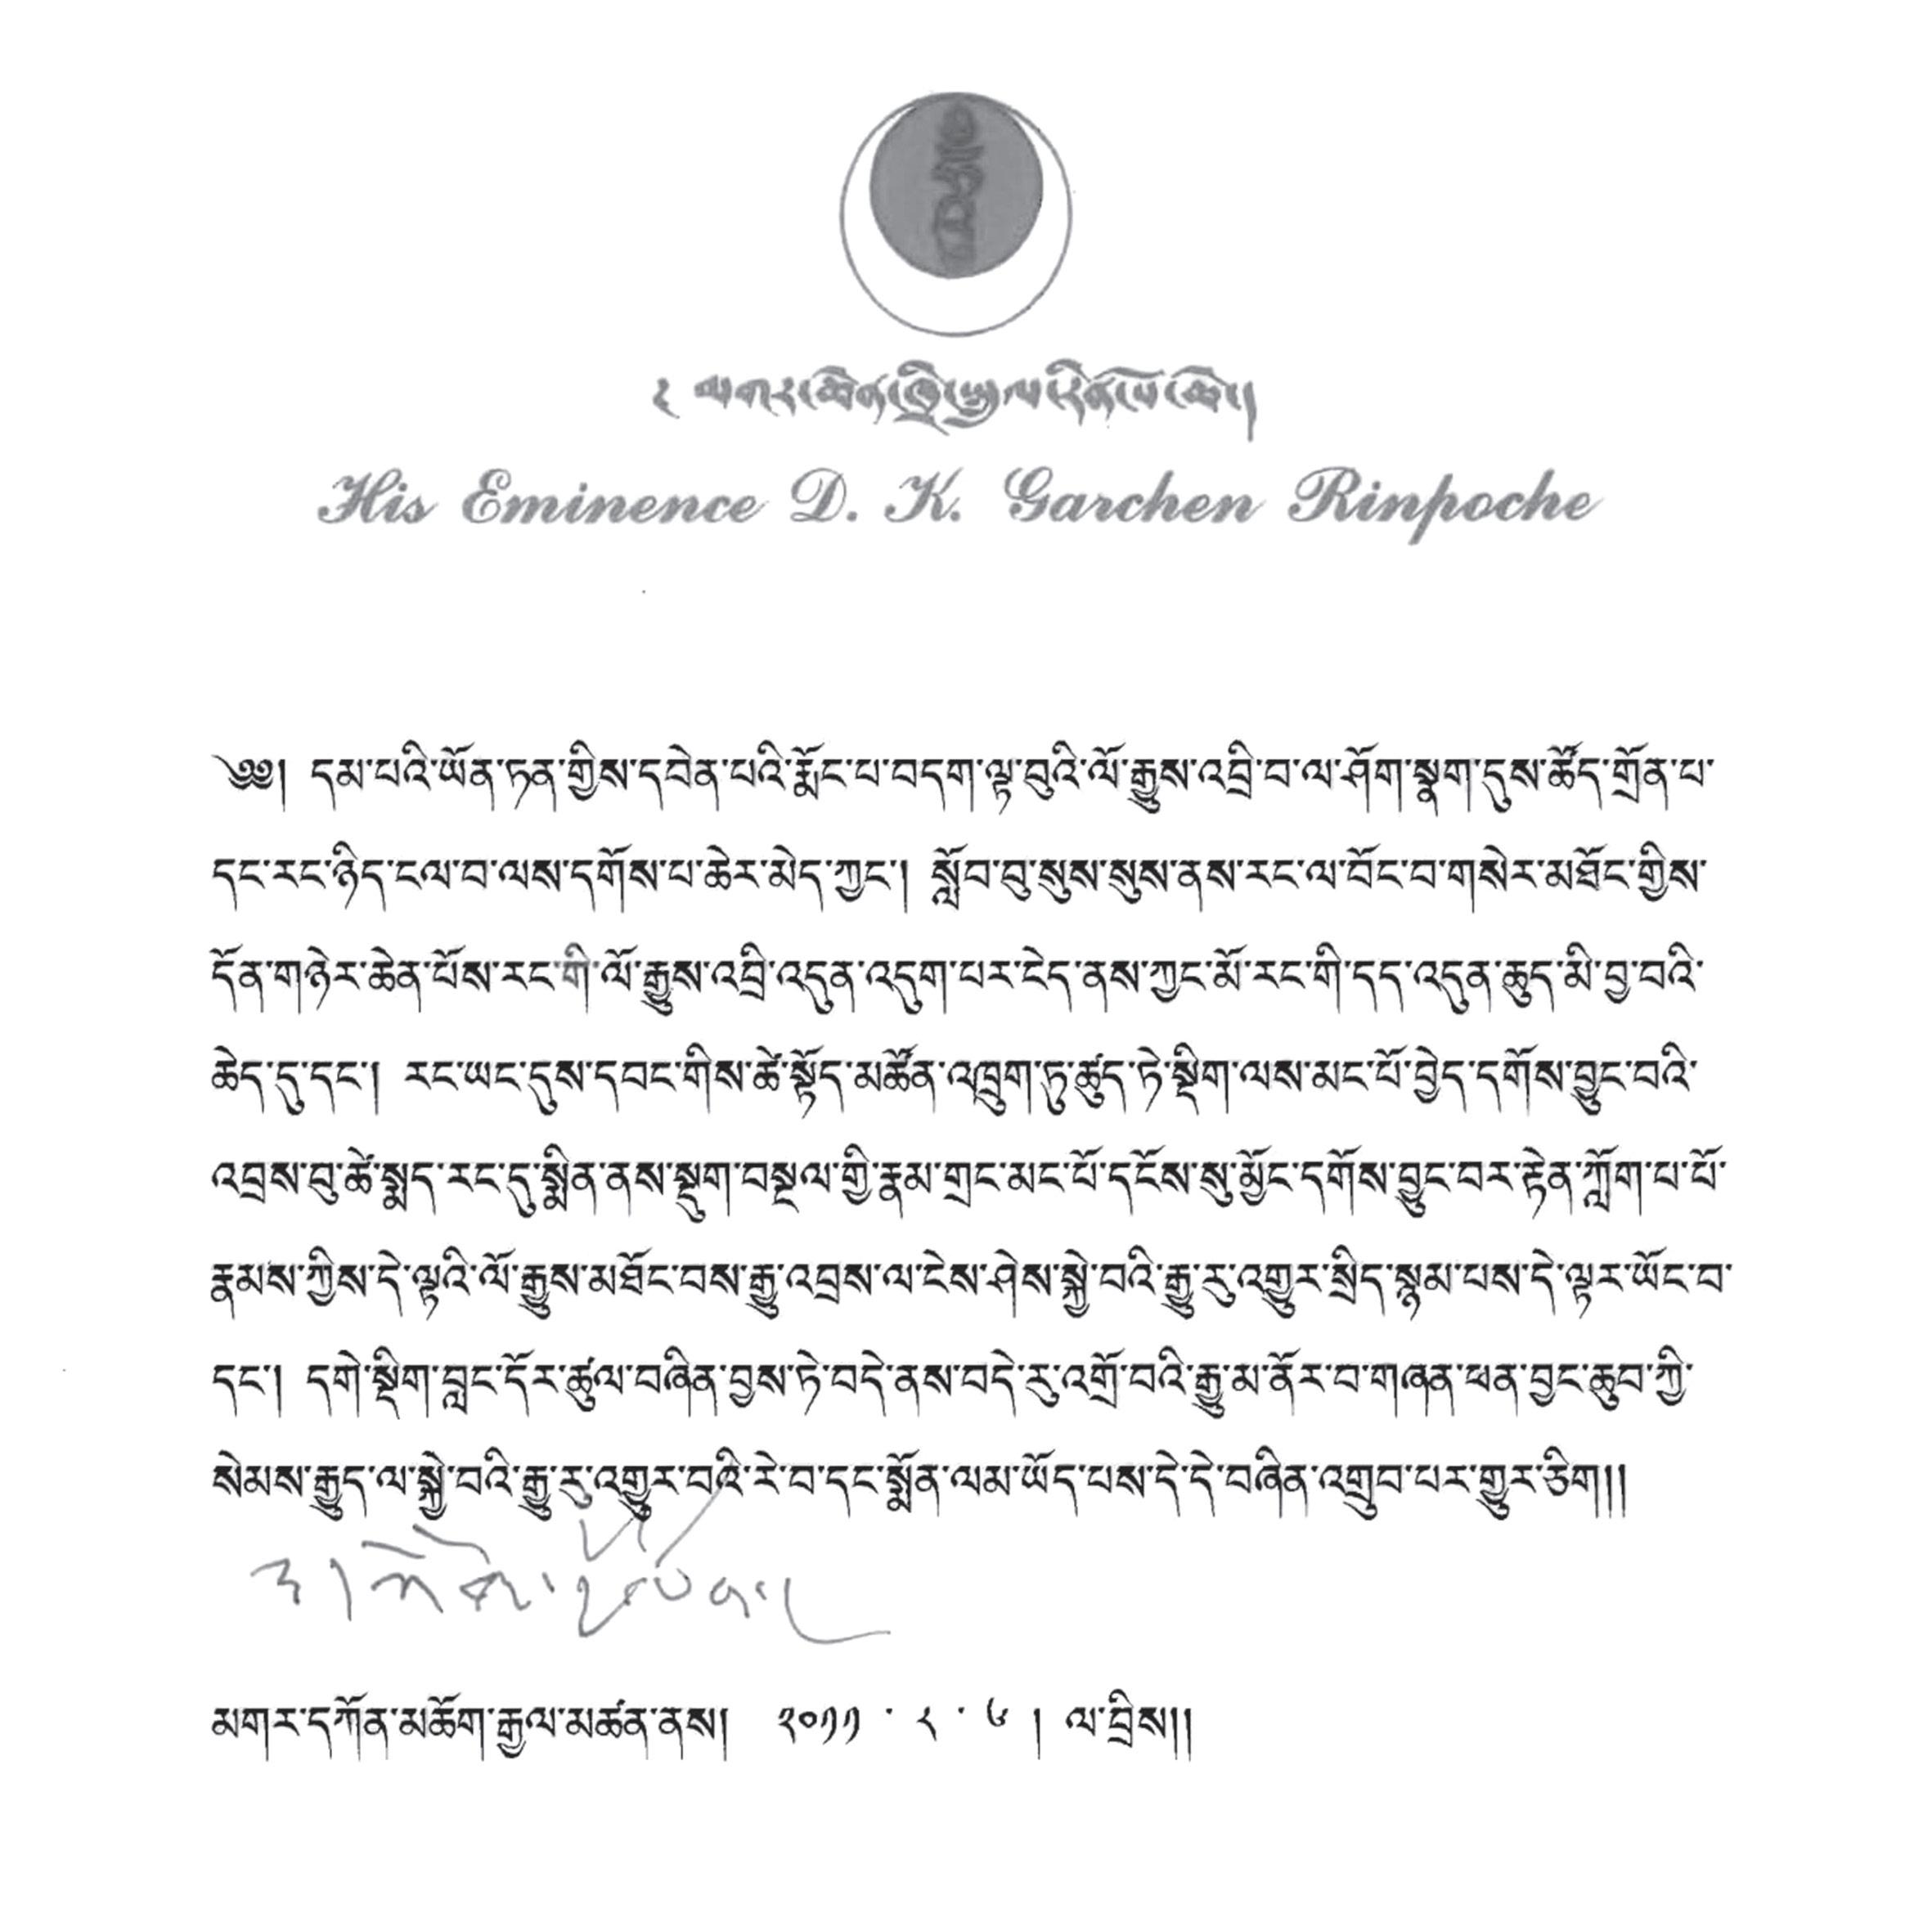 His Eminence D. K. Garchen Rinpoche
༄༅། དམ་པའི་ཡོན་ཏན་གྱིས་དབེན་པའི་རྨོང་པ་བདག་ལྟ་བུའི་ལོ་རྒྱུས་འབྲི་བ་ལ་ཤོག་སྣག་དུས་ཚོད་གྲོན་པ་
དང་རང་ཉིད་ངལ་བ་ལས་དགོས་པ་ཆེར་མེད་ཀྱང་། སློབ་བུ་སུས་སུས་ནས་རང་ལ་བོང་བ་གསེར་མཐོང་གྱིས་
དོན་གཉེར་ཆེན་པོས་རང་གི་ལོ་རྒྱུས་འབྲི་འདུན་འདུག་པར་ངེད་ནས་ཀྱང་མོ་རང་གི་དད་འདུན་ཆུད་མི་བྱ་བའི་
ཆེད་དུ་དང་། རང་ཡང་དུས་དབང་གིས་ཚེ་སྟོད་མཚོན་འཁྲུག་ཏུ་ཚུད་ཏེ་སྡིག་ལས་མང་པོ་བྱེད་དགོས་བྱུང་བའི་
འབྲས་བུ་ཚེ་སྨད་རང་དུ་སྨིན་ནས་སྡུག་བསྔལ་གྱི་རྣམ་གྲང་མང་པོ་དངོས་སུ་མྱོང་དགོས་བྱུང་བར་རྟེན་ཀློག་པ་པོ་
རྣམས་ཀྱིས་དེ་ལྟའི་ལོ་རྒྱུས་མཐོང་བས་རྒྱུ་འབྲས་ལ་ངེས་ཤེས་སྐྱེ་བའི་རྒྱུ་རུ་འགྱུར་སྲིད་སྙམ་པས་དེ་ལྟར་ཡོང་བ་
དང་། དགེ་སྡིག་བླང་དོར་ཚུལ་བཞིན་བྱས་ཏེ་བདེ་ནས་བདེ་རུ་འགྲོ་བའི་རྒྱུ་མ་ནོར་བ་གཞན་ཕན་བྱང་ཆུབ་ཀྱི་
སེམས་རྒྱུད་ལ་སྐྱེ་བའི་རྒྱུ་རུ་འགྱུར་བའི་རེ་བ་དང་སྨོན་ལམ་ཡོད་པས་དེ་དེ་བཞིན་འགྲུབ་པར་གྱུར་ཅིག།།
མགར་དཀོན་མཆོག་རྒྱལ་མཚན་ནས། ༢༠༡༡ ་ ༨ ་ ༦ ། ལ་བྲིས།།